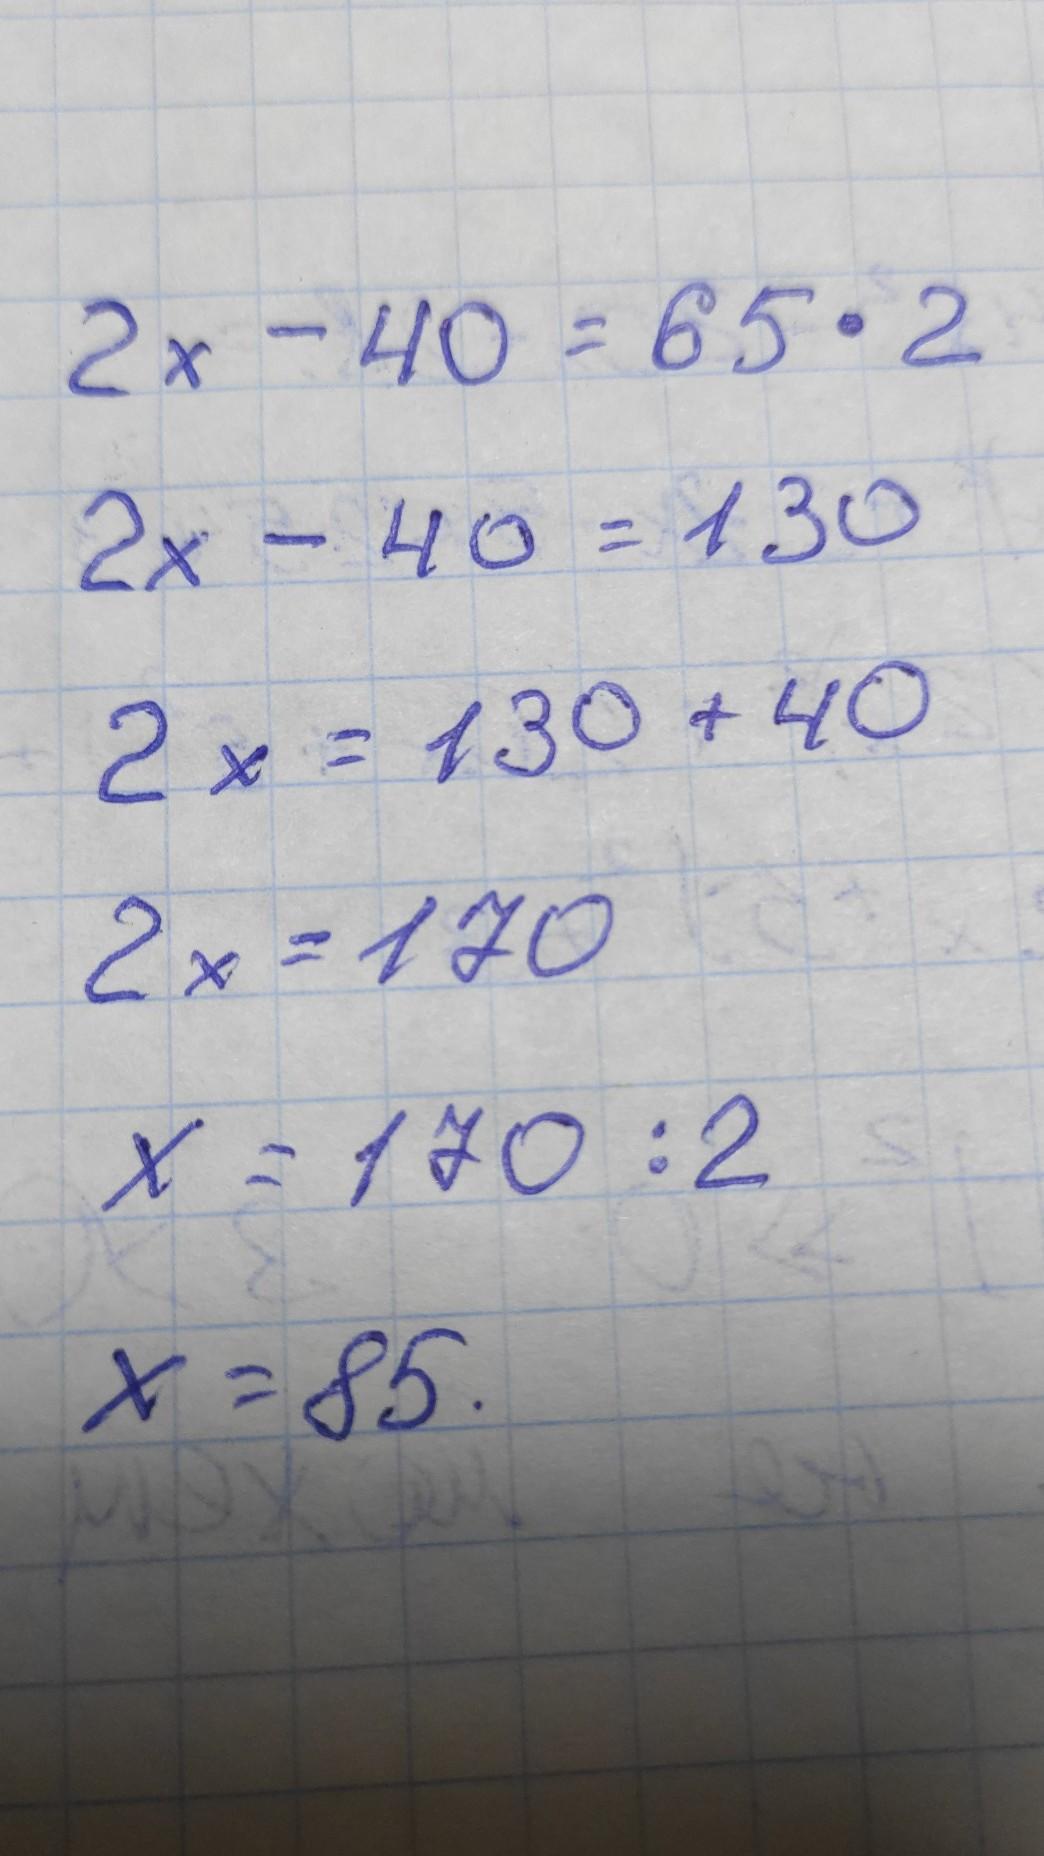 2x - 40 = 65 · 2
2x - 40 = 130
2x = 130 + 40
2x = 170
x = 170 : 2
x = 85.